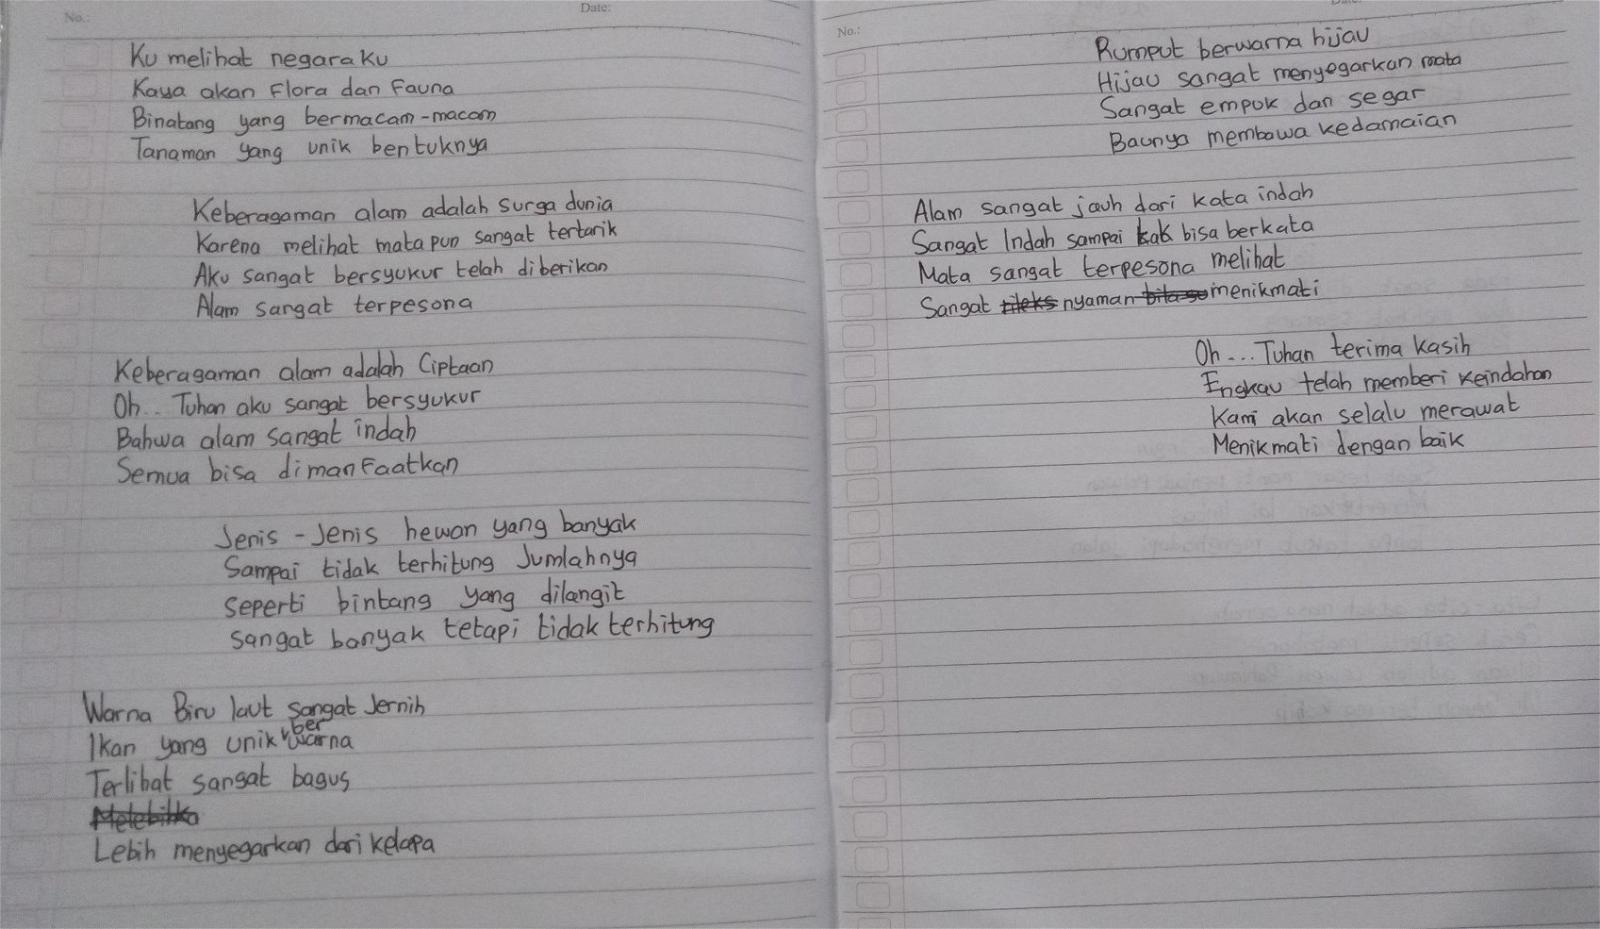 No.:
Date:
Ku melihat negaraku
Kaya akan Flora dan Fauna
Binatang yang bermacam-macam
Tanaman yang unik bentuknya
Keberagaman alam adalah surga dunia
Karena melihat mata pun sangat tertarik
Aku sangat bersyukur telah diberikan
Alam sangat terpesona
Keberagaman alam adalah Ciptaan
Oh.. Tuhan aku sangat bersyukur
Bahwa alam sangat indah
Semua bisa dimanfaatkan
Jenis - Jenis hewan yang banyak
Sampai tidak terhitung Jumlahnya
seperti bintang yang dilangit
sangat banyak tetapi tidak terhitung
Warna Biru laut sangat Jernih
Ikan yang unik berwarna
Terlihat sangat bagus
Lebih menyegarkan dari kelapa
No.:
Rumput berwarna hijau
Hijau sangat menyegarkan mata
Sangat empuk dan segar
Baunya membawa kedamaian
Alam sangat jauh dari kata indah
Sangat Indah sampai kak bisa berkata
Mata sangat terpesona melihat
Sangat nyaman menikmati
Oh... Tuhan terima kasih
Engkau telah memberi keindahan
Kami akan selalu merawat
Menikmati dengan baik